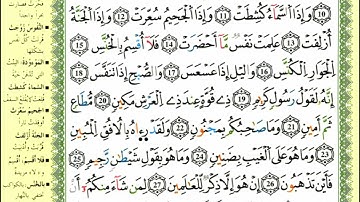 10 وَإِذَا ٱلسَّمَآءُ كُشِطَتْ 11 وَإِذَا ٱلْجَحِيمُ سُعِّرَتْ 12 وَإِذَا ٱلْجَنَّةُ
أُزْلِفَتْ 13 عَلِمَتْ نَفْسٌ مَّآ أَحْضَرَتْ 14 فَلَآ أُقْسِمُ بِٱلْخُنَّسِ 15
ٱلْجَوَارِ ٱلْكُنَّسِ 16 وَٱلَّيْلِ إِذَا عَسْعَسَ 17 وَٱلصُّبْحِ إِذَا تَنَفَّسَ 18
إِنَّهُۥ لَقَوْلُ رَسُولٍ كَرِيمٍ 19 ذِى قُوَّةٍ عِندَ ذِى ٱلْعَرْشِ مَكِينٍ 20 مُّطَاعٍ
ثَمَّ أَمِينٍ 21 وَمَا صَاحِبُكُم بِمَجْنُونٍ 22 وَلَقَدْ رَءَاهُ بِٱلْأُفُقِ ٱلْمُبِينِ
23 وَمَا هُوَ عَلَى ٱلْغَيْبِ بِضَنِينٍ 24 وَمَا هُوَ بِقَوْلِ شَيْطَٰنٍ رَّجِيمٍ 25
فَأَيْنَ تَذْهَبُونَ 26 إِنْ هُوَ إِلَّا ذِكْرٌ لِّلْعَٰلَمِينَ 27 لِمَن شَآءَ مِنكُمْ أَن